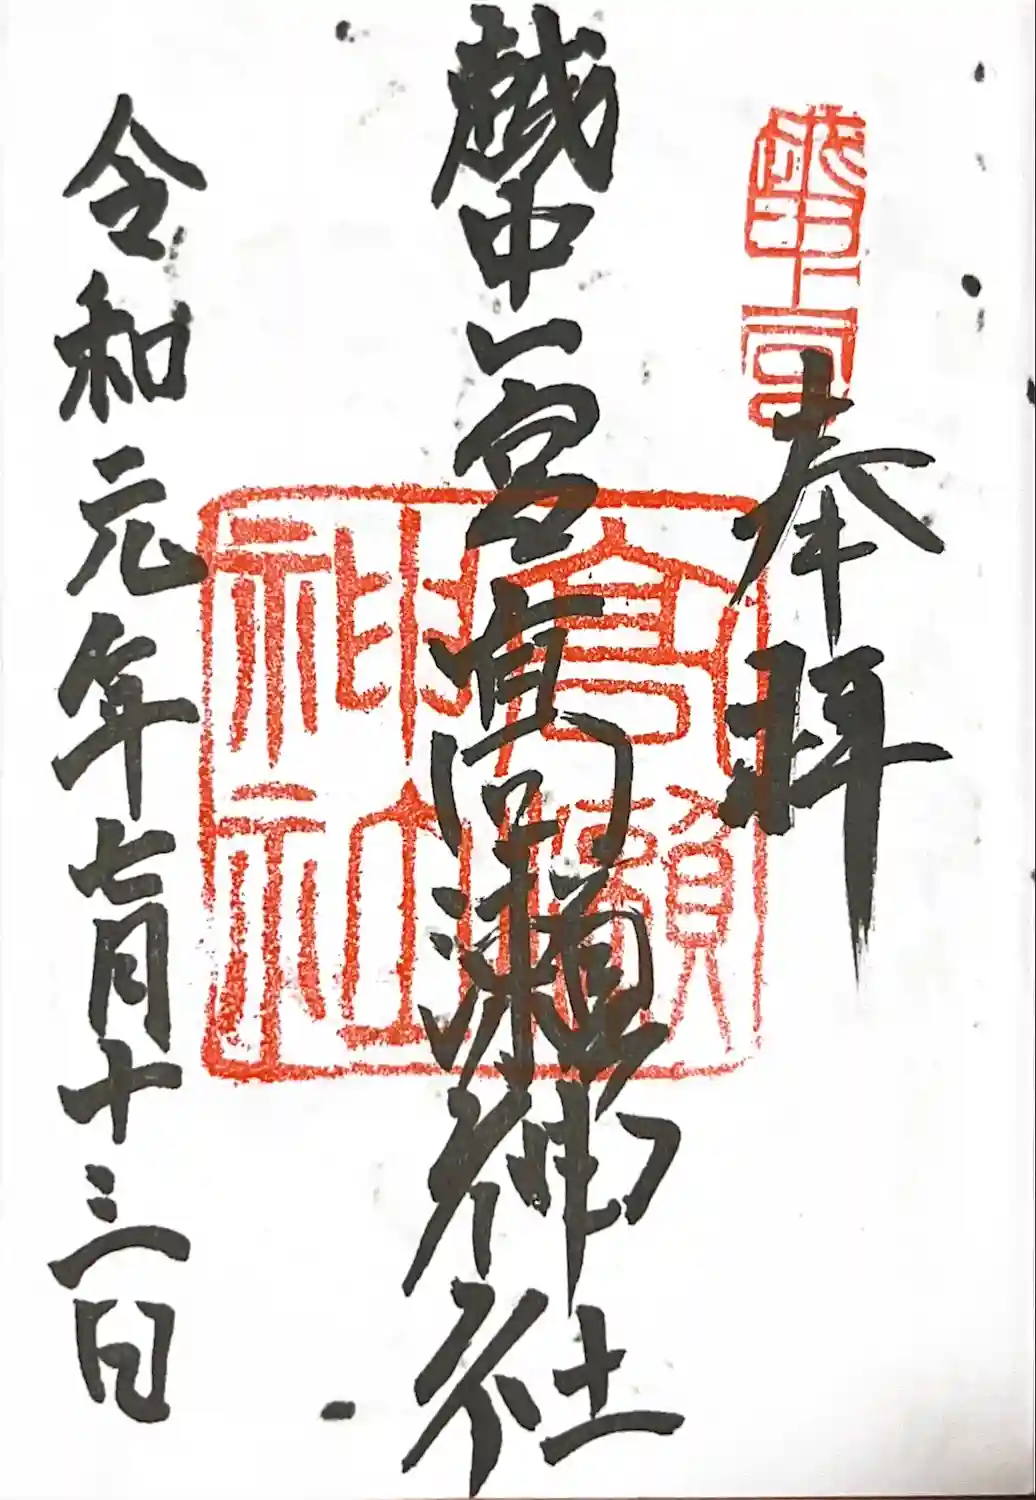 奉拝
越中一宮高瀬神社
高瀬神社
令和元年七月十三日